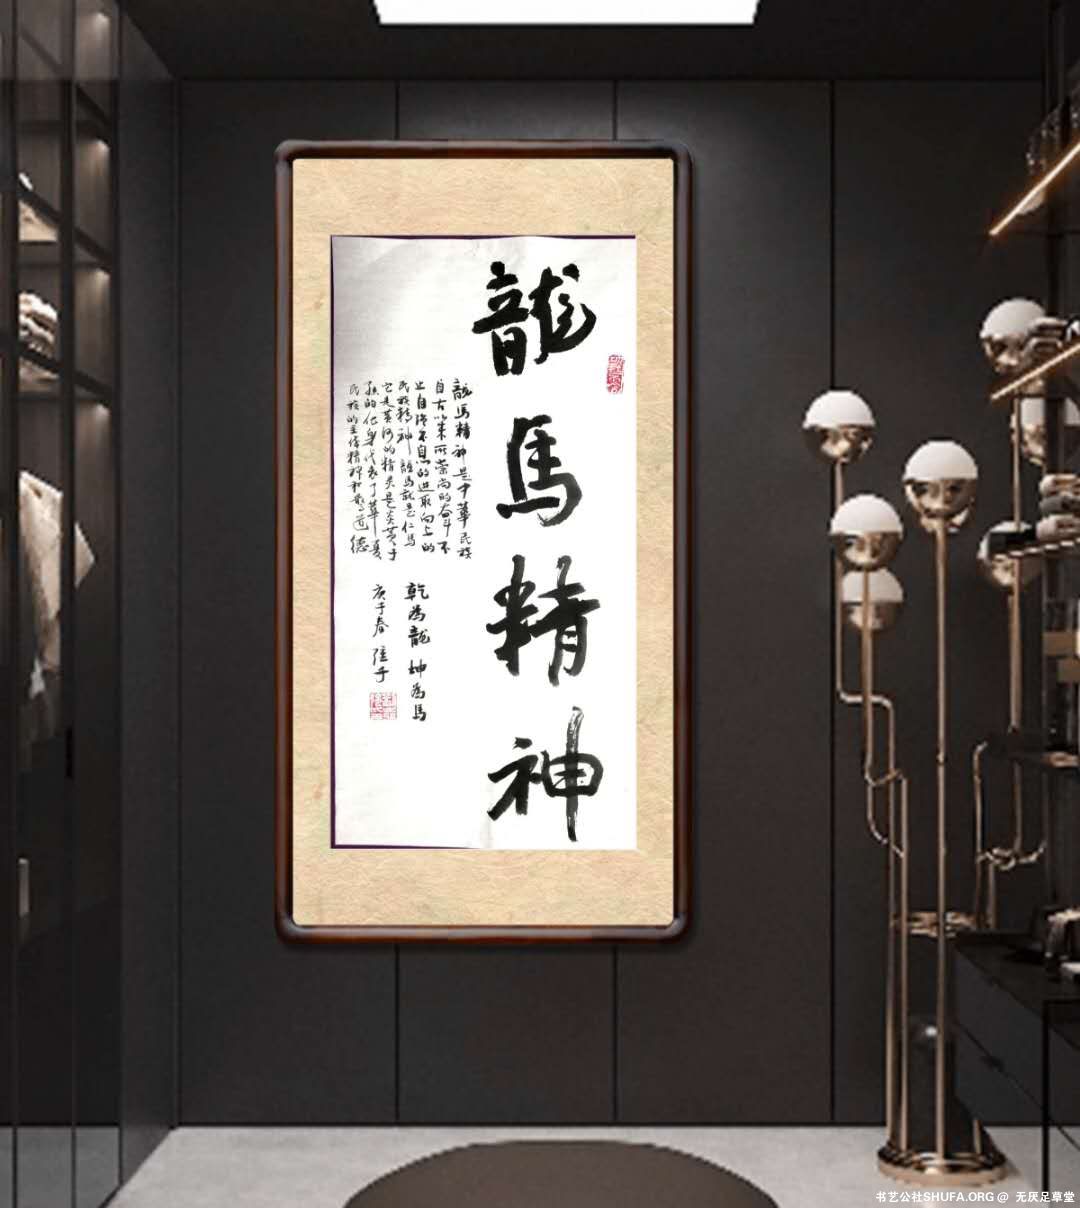 龍馬精神
龍馬精神是中華民族
自古以来所崇尚的奋斗不
止自强不息的进取向上的
民族精神 龍馬就是仁马
它是黄河的精灵是炎黄子
孫的化身代表了華夏
民族的主体精神和最高道德
乾為龍 坤為馬
庚子春
书艺公社SHUFA.ORG @ 无厌足草堂